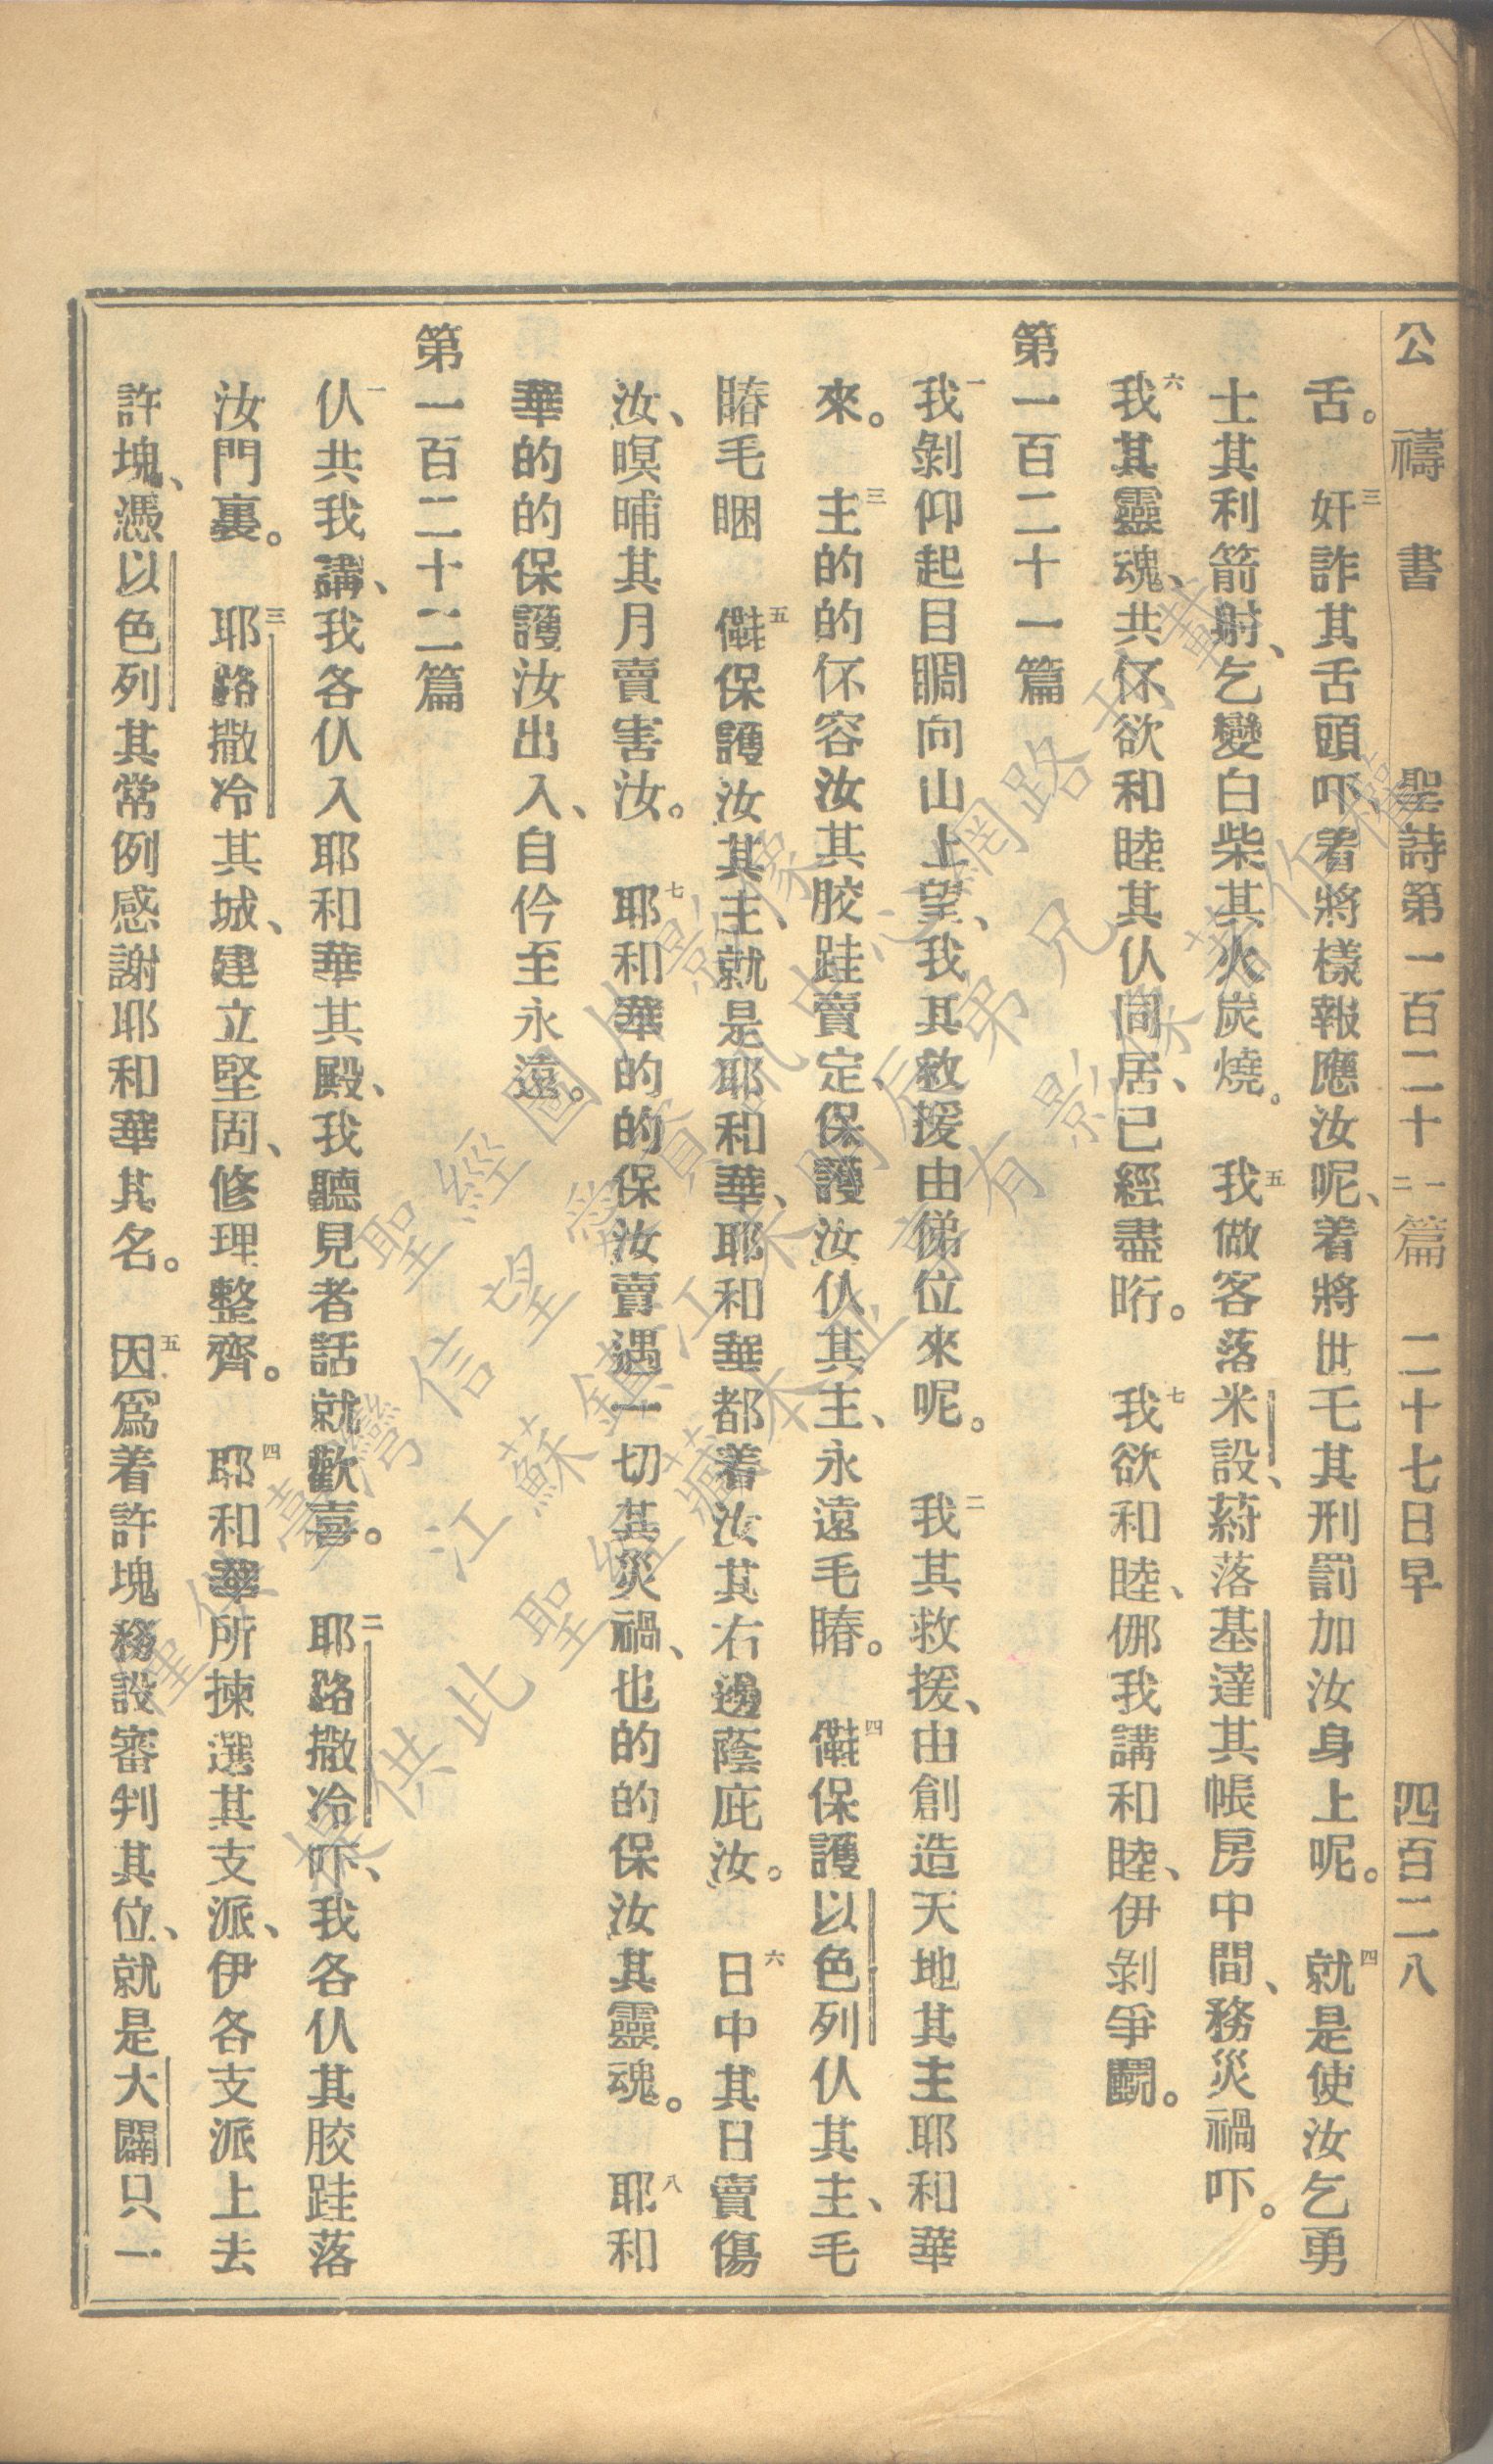 公禱書 聖詩第一百二十一二篇 二十七日早 四百二八
舌。三奸詐其舌頭吓着將樣報應汝呢、着將世乇其刑罰加汝身上呢。四就是使汝乞勇
士其利箭射、乞變白柴其火炭燒。五我做客落米設、蒛落基達其帳房中間、務災禍吓。
六我其靈魂、共伓欲和睦其仈同居、已經盡𥅾。七我欲和睦、倻我講和睦、伊剝爭鬬。
第一百二十一篇
一我剝仰起目睭向山上望、我其救援由俤位來呢。二我其救援、由創造天地其主耶和華
來。三主的的伓容汝其骹跬賣定、保護汝仈其主、永遠毛睶。四儺保護以色列仈其主、毛
睶毛睏 五儺保護汝其主、就是耶和華、耶和華都着汝其右邊蔭庇汝。六日中其日賣傷
汝、暝晡其月賣害汝。七耶和華的的保汝賣遇一切其災禍、也的的保汝其靈魂。八耶和
華的的保護汝出入、自仱至永遠。
第一百二十二篇
一仈共我講、我各仈入耶和華其殿、我聽見者話就歡喜。二耶路撒冷吓、我各仈其骹跬落
汝門裏。三耶路撒冷其城、建立堅固、修理整齊。四耶和華所揀選其支派、伊各支派上去
許塊、憑以色列其常例感謝耶和華其名。五因爲着許塊務設審判其位、就是大闢只一
聖經圖片影像
臺灣信望愛資訊中心網路刊載
江蘇鎮江
提供此聖經藏本並享有影像著作權